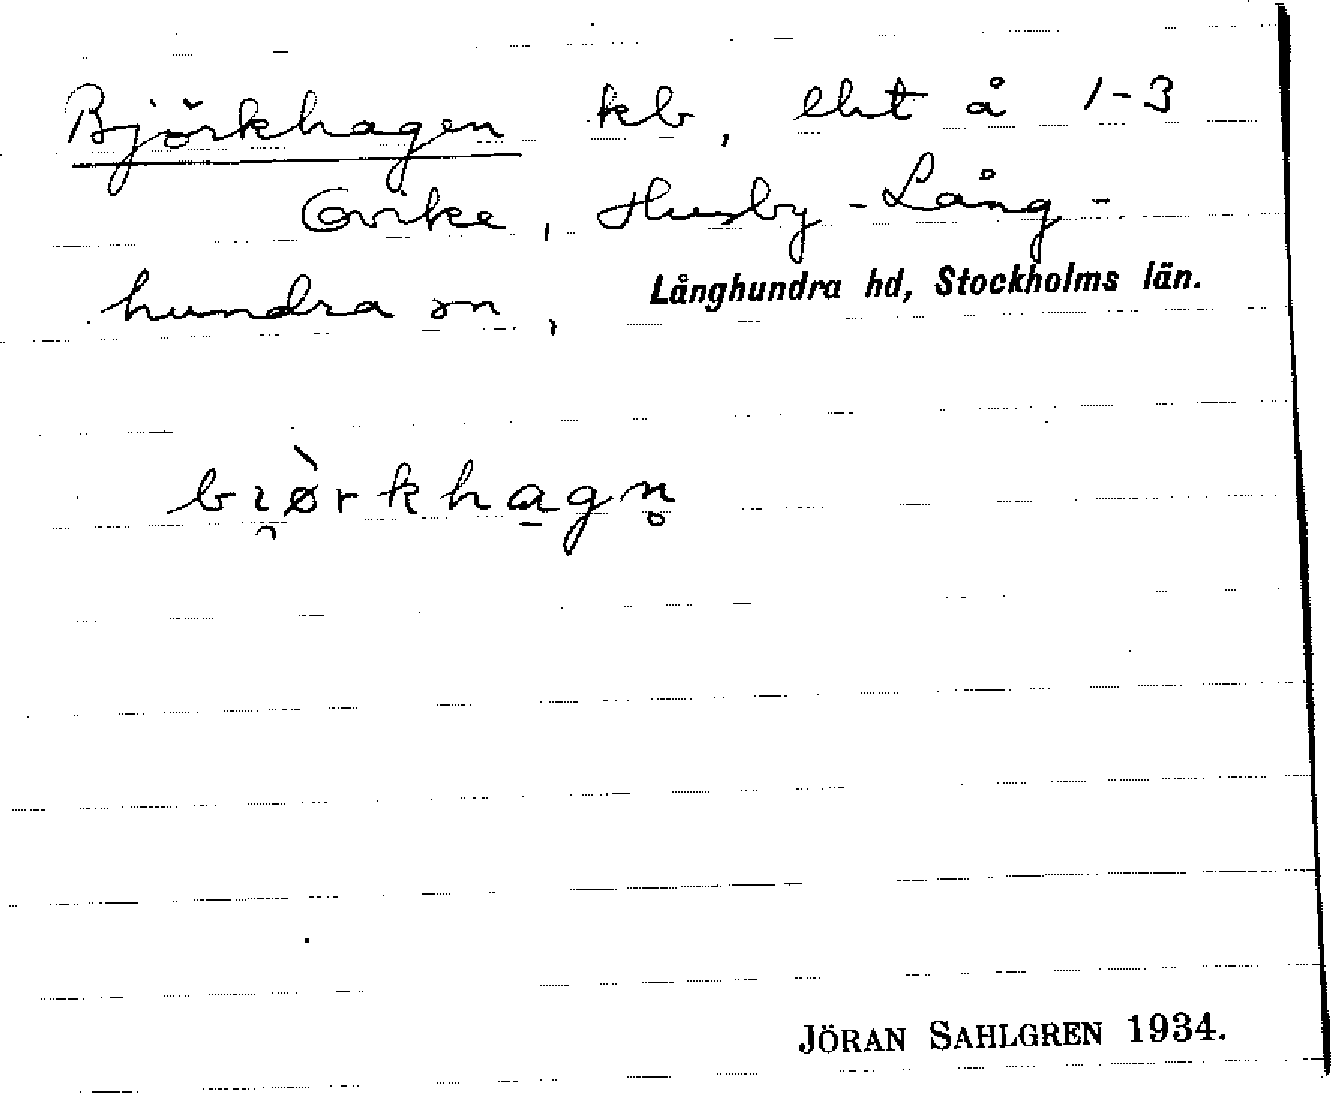 Björkhagen kb, eht å 1-3
Corike, Husby-Lång-
hundra sn, Långhundra hd, Stockholms län.
bi̯ø̀rkha̠gn̥
JÖRAN SAHLGREN 1934.